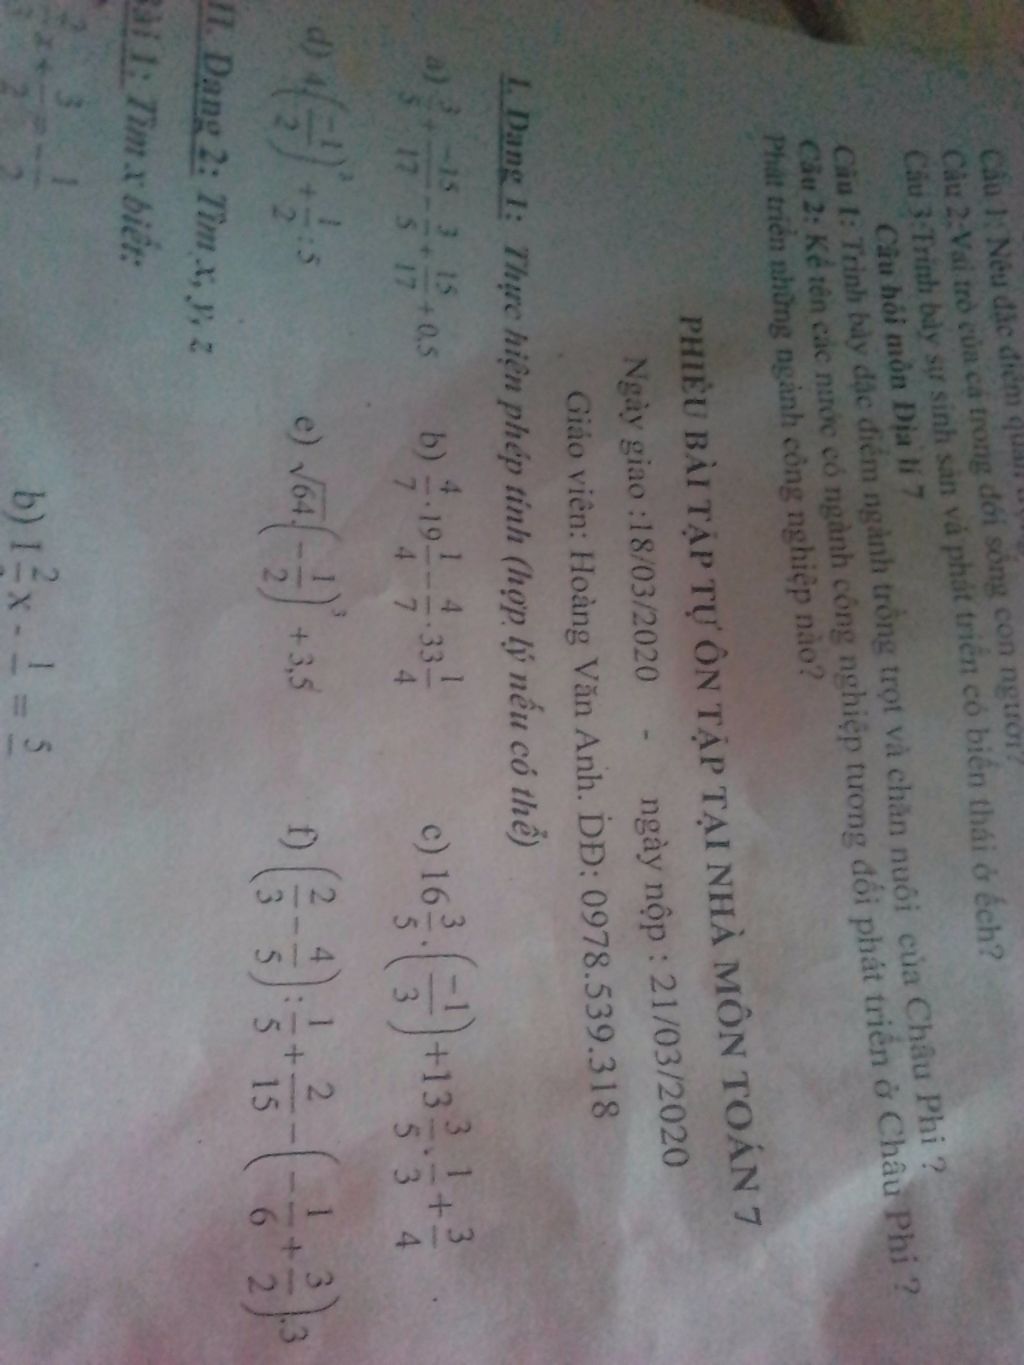 Câu 1: Nêu đặc điểm quan
Câu 2: Vai trò của cá trong đời sống con người?
Câu 3: Trình bày sự sinh sản và phát triển có biến thái ở ếch?
Câu hỏi môn Địa lí 7
Câu 1: Trình bày đặc điểm ngành trồng trọt và chăn nuôi của Châu Phi ?
Câu 2: Kể tên các nước có ngành công nghiệp tương đối phát triển ở Châu Phi ?
Phát triển những ngành công nghiệp nào?
PHIẾU BÀI TẬP TỰ ÔN TẬP TẠI NHÀ MÔN TOÁN 7
Ngày giao :18/03/2020 - ngày nộp : 21/03/2020
Giáo viên: Hoàng Văn Anh. DĐ: 0978.539.318
I. Dạng 1: Thực hiện phép tính (hợp lý nếu có thể)
a) 3/5 + -15/17 - 3/5 + 15/17 + 0,5 b) 4/7 . 19 1/4 - 4/7 . 33 1/4 c) 16 3/5 . (-1/3) + 13 3/5 . 1/3 + 3/4
d) 4(-1/2)² + 1/2 : 5 e) √64.(-1/2)³ + 3,5 f) (2/3 - 4/5) : 1/5 + 2/15 - (-1/6 + 3/2).3
II. Dạng 2: Tìm x, y, z
Bài 1: Tìm x biết:
x + 3/2 = 1/2 b) 1 2 x - 1 = 5